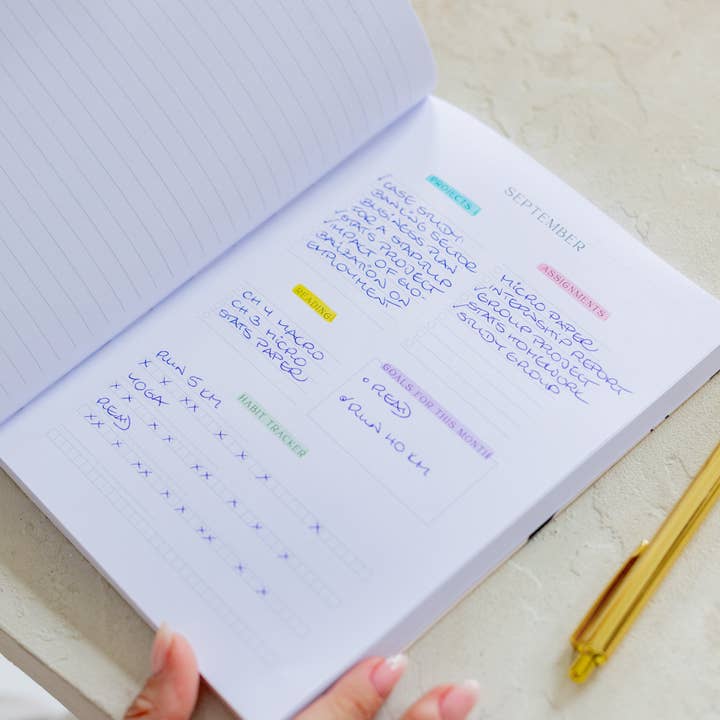 SEPTEMBER
PROJECTS
/CASE STUDY:
BANKING SECTOR
BUSINESS PLAN
FOR A STARTUP
/STATS PROJECT
IMPACT OF GLO-
BALIZATION ON
EMPLOYMENT
ASSIGNMENTS
MICRO PAPER
/INTERNSHIP REPORT
GROUP PROJECT
/STATS HOMEWORK
STUDY GROUP
READING
CH 4 MACRO
CH 3 MICRO
STATS PAPER
GOALS FOR THIS MONTH
• READ
✓RUN 40 KM
HABIT TRACKER
RUN 5 KM
x x xx x x x x
YOGA
x x x x xx x x x
READ
xx xx x x xx x x